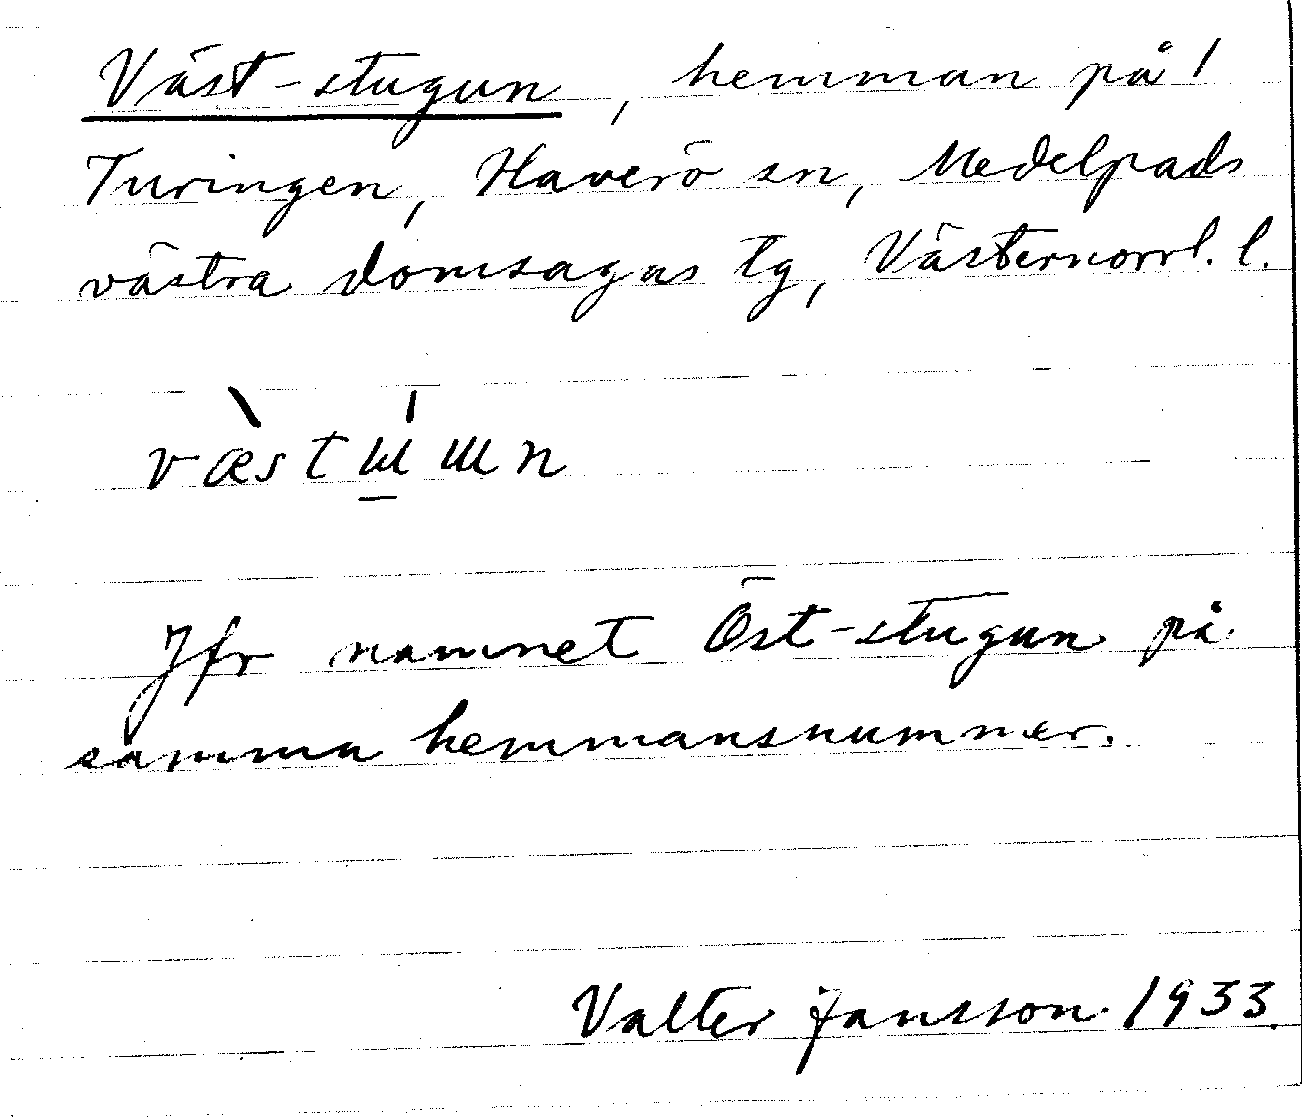 Väst-stugun, hemman på 1
Turingen, Haverö sn, Medelpads
västra domsagas tg, Västernorrl. l.
væ̀stɯ́ɯn
Jfr namnet Öst-stugun på
samma hemmansnummer.
Valter Jansson 1933.